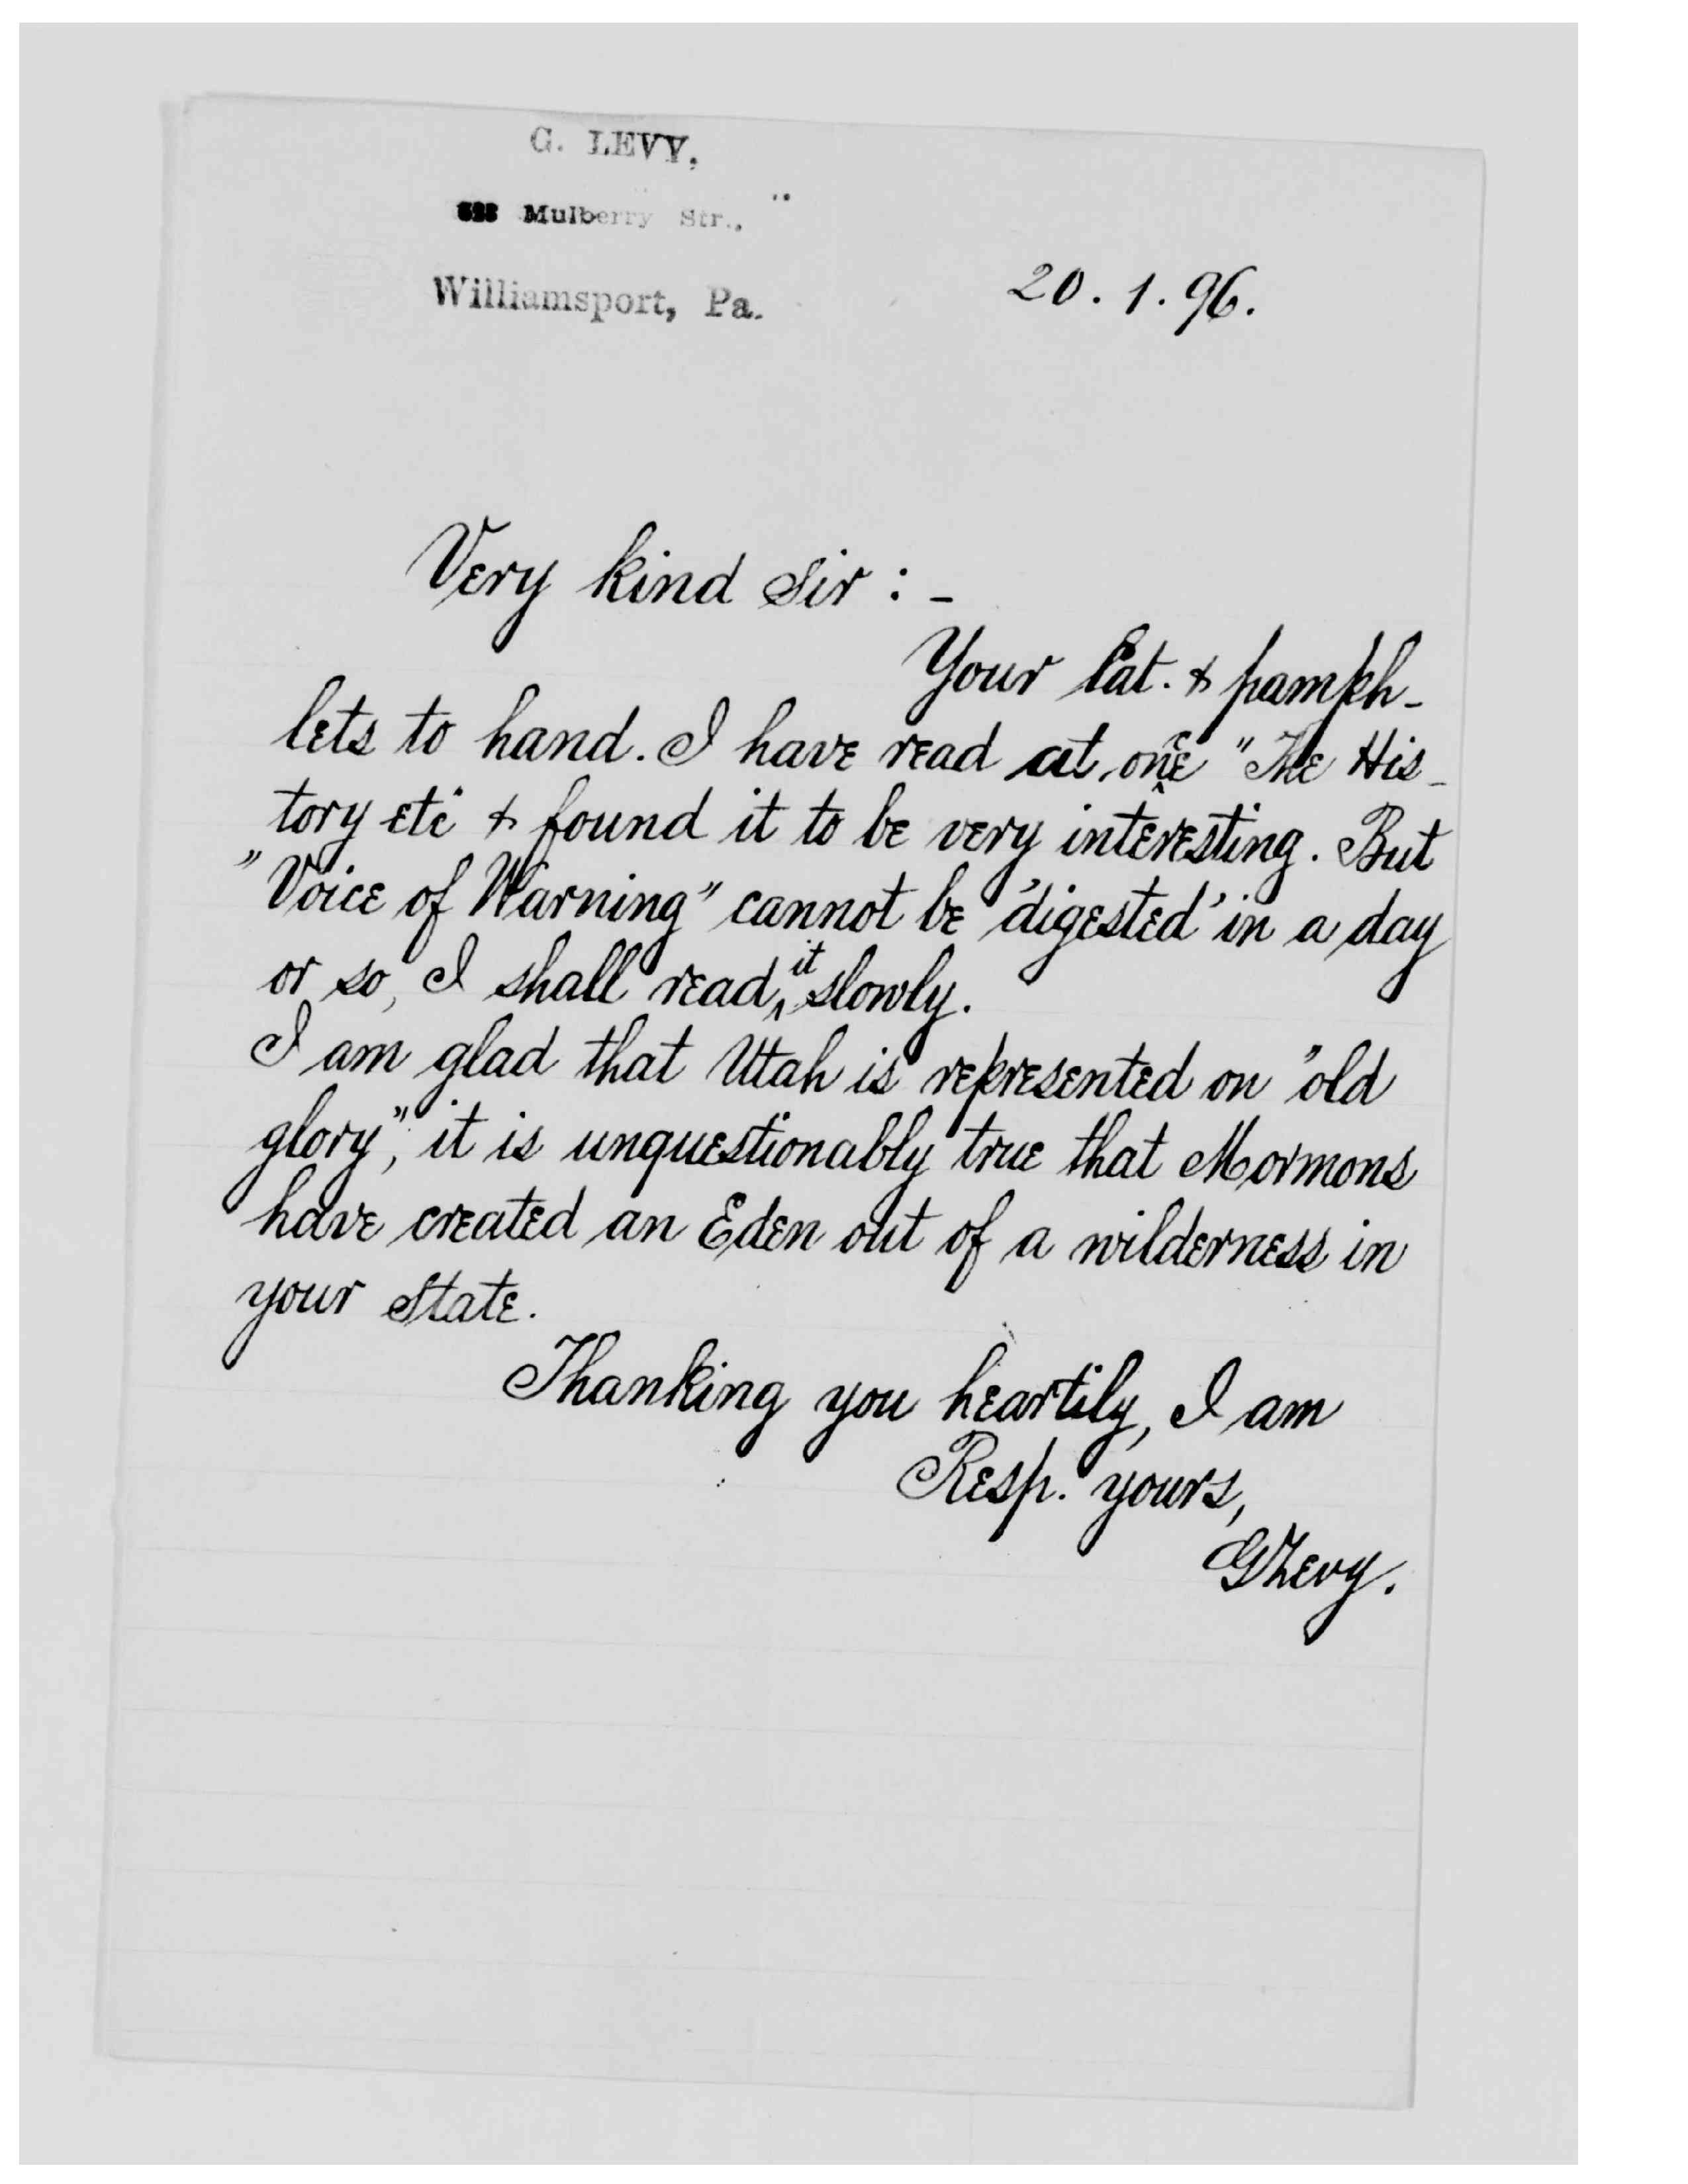 G. LEVY,
Mulberry Str.,
Williamsport, Pa.
20. 1. 96.
Very kind Sir : -
Your Cat. & pamph-
lets to hand. I have read at once "The His-
tory etc" & found it to be very interesting. But
"Voice of Warning" cannot be 'digested' in a day
or so, I shall read it slowly.
I am glad that Utah is represented on "old
glory", it is unquestionably true that Mormons
have created an Eden out of a wilderness in
your State.
Thanking you heartily, I am
Resp. yours,
GLevy.